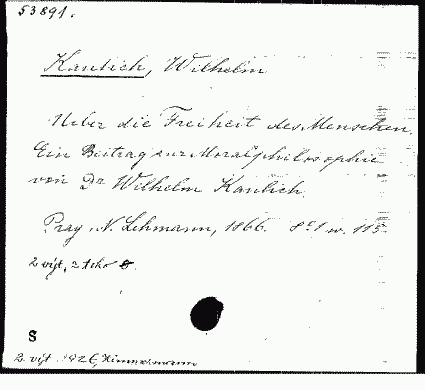 53891.
Kaulich, Wilhelm
Ueber die Freiheit des Menschen.
Ein Beitrag zur Moralphilosophie
von Dr Wilhelm Kaulich.
Prag, N. Lehmann, 1866. 8° 1 w. 115
2 vyt,
S
2 vyt 1926, Himmelmann